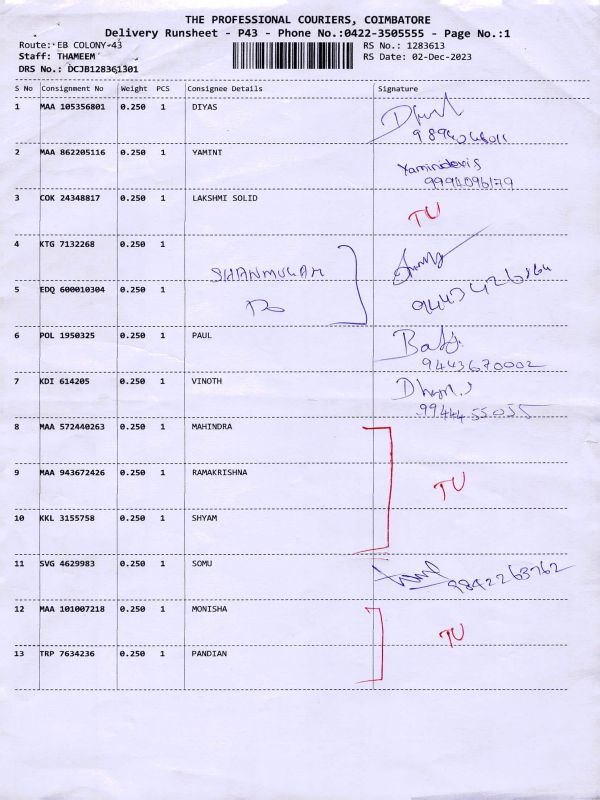 THE PROFESSIONAL COURIERS, COIMBATORE
Delivery Runsheet - P43 - Phone No.:0422-3505555 - Page No.:1
Route: EB COLONY-43 RS No.: 1283613
Staff: THAMEEM RS Date: 02-Dec-2023
DRS No.: DCJB128361301
S No Consignment No Weight PCS Consignee Details Signature
1 MAA 105356801 0.250 1 DIYAS
2 MAA 862205116 0.250 1 YAMINT
Yaminidevi S
9994096179
3 COK 24348817 0.250 1 LAKSHMI SOLID TU
4 KTG 7132268 0.250 1
SHANMUGAM
5 EDQ 600010304 0.250 1
6 POL 1950325 0.250 1 PAUL
9443670002
7 KDI 614205 0.250 1 VINOTH
9944455055
8 MAA 572440263 0.250 1 MAHINDRA
9 MAA 943672426 0.250 1 RAMAKRISHNA TU
10 KKL 3155758 0.250 1 SHYAM
11 SVG 4629983 0.250 1 SOMU 9842263762
12 MAA 101007218 0.250 1 MONISHA
TU
13 TRP 7634236 0.250 1 PANDIAN